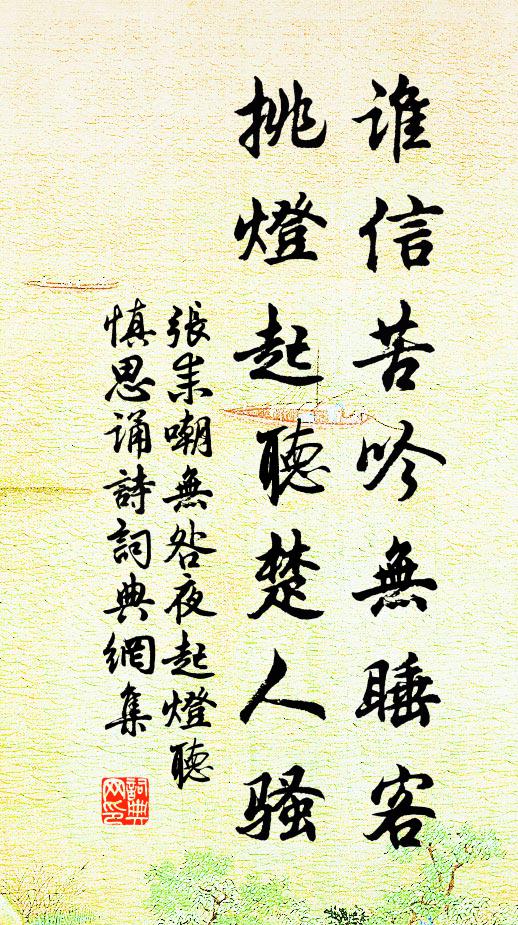 谁信苦吟無睡客
挑燈起聽楚人骚
張耒嘲無咎夜起燈聽
慎思诵詩詞典網集
詞典
网印